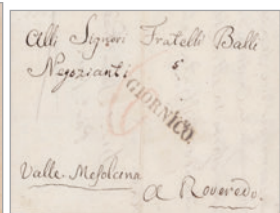 Alli Signori Fratelli Balli
Negozianti
GIORNICO.
Valle Mesolcina
a Roveredo.